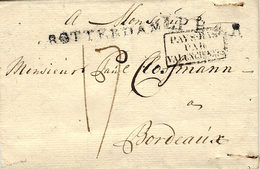 à Monsieur
ROTTERDAM
PAYS-BAS
PAR
VALENCIENNES
17
Monsieur Paul Cloßmann
à
Bordeaux